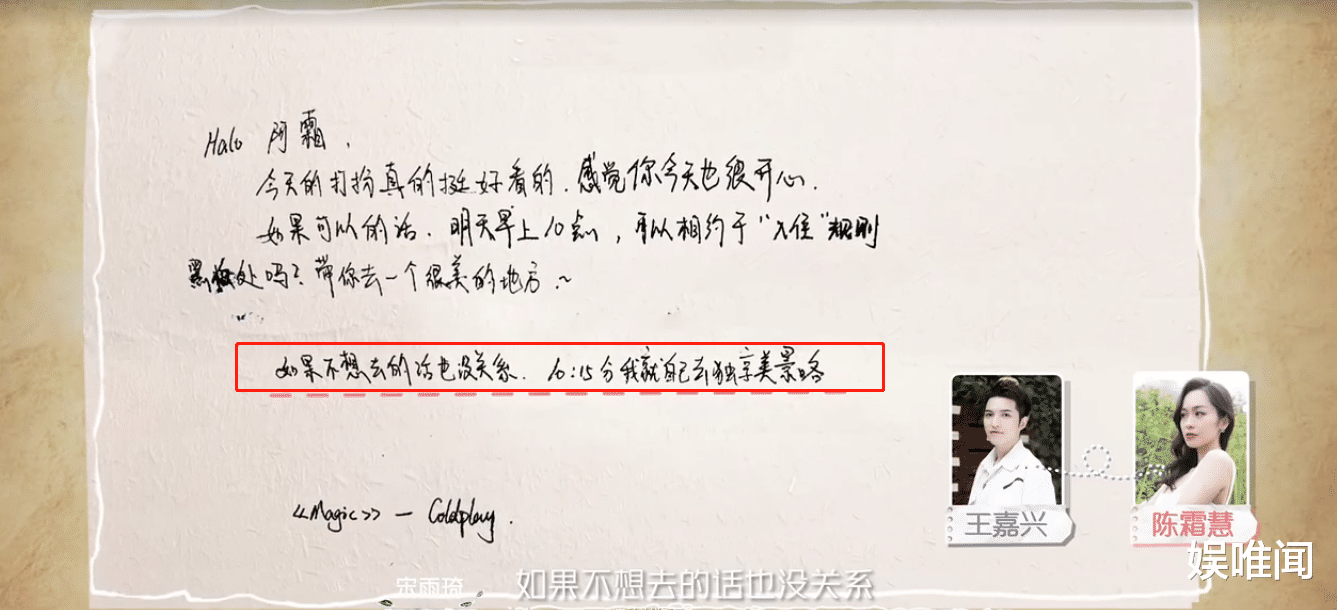 Halo 阿霜，
今天的打扮真的挺好看的．感觉你今天也很开心．
如果可以的话．明天早上10点，可以相约于“入住”规则
黑板处吗？带你去一个很美的地方～
如果不想去的话也没关系．10:15分我就自己去独享美景咯
《Magic》— Coldplay．
王嘉兴
陈霜慧
宋雨琦 如果不想去的话也没关系
娱唯闻